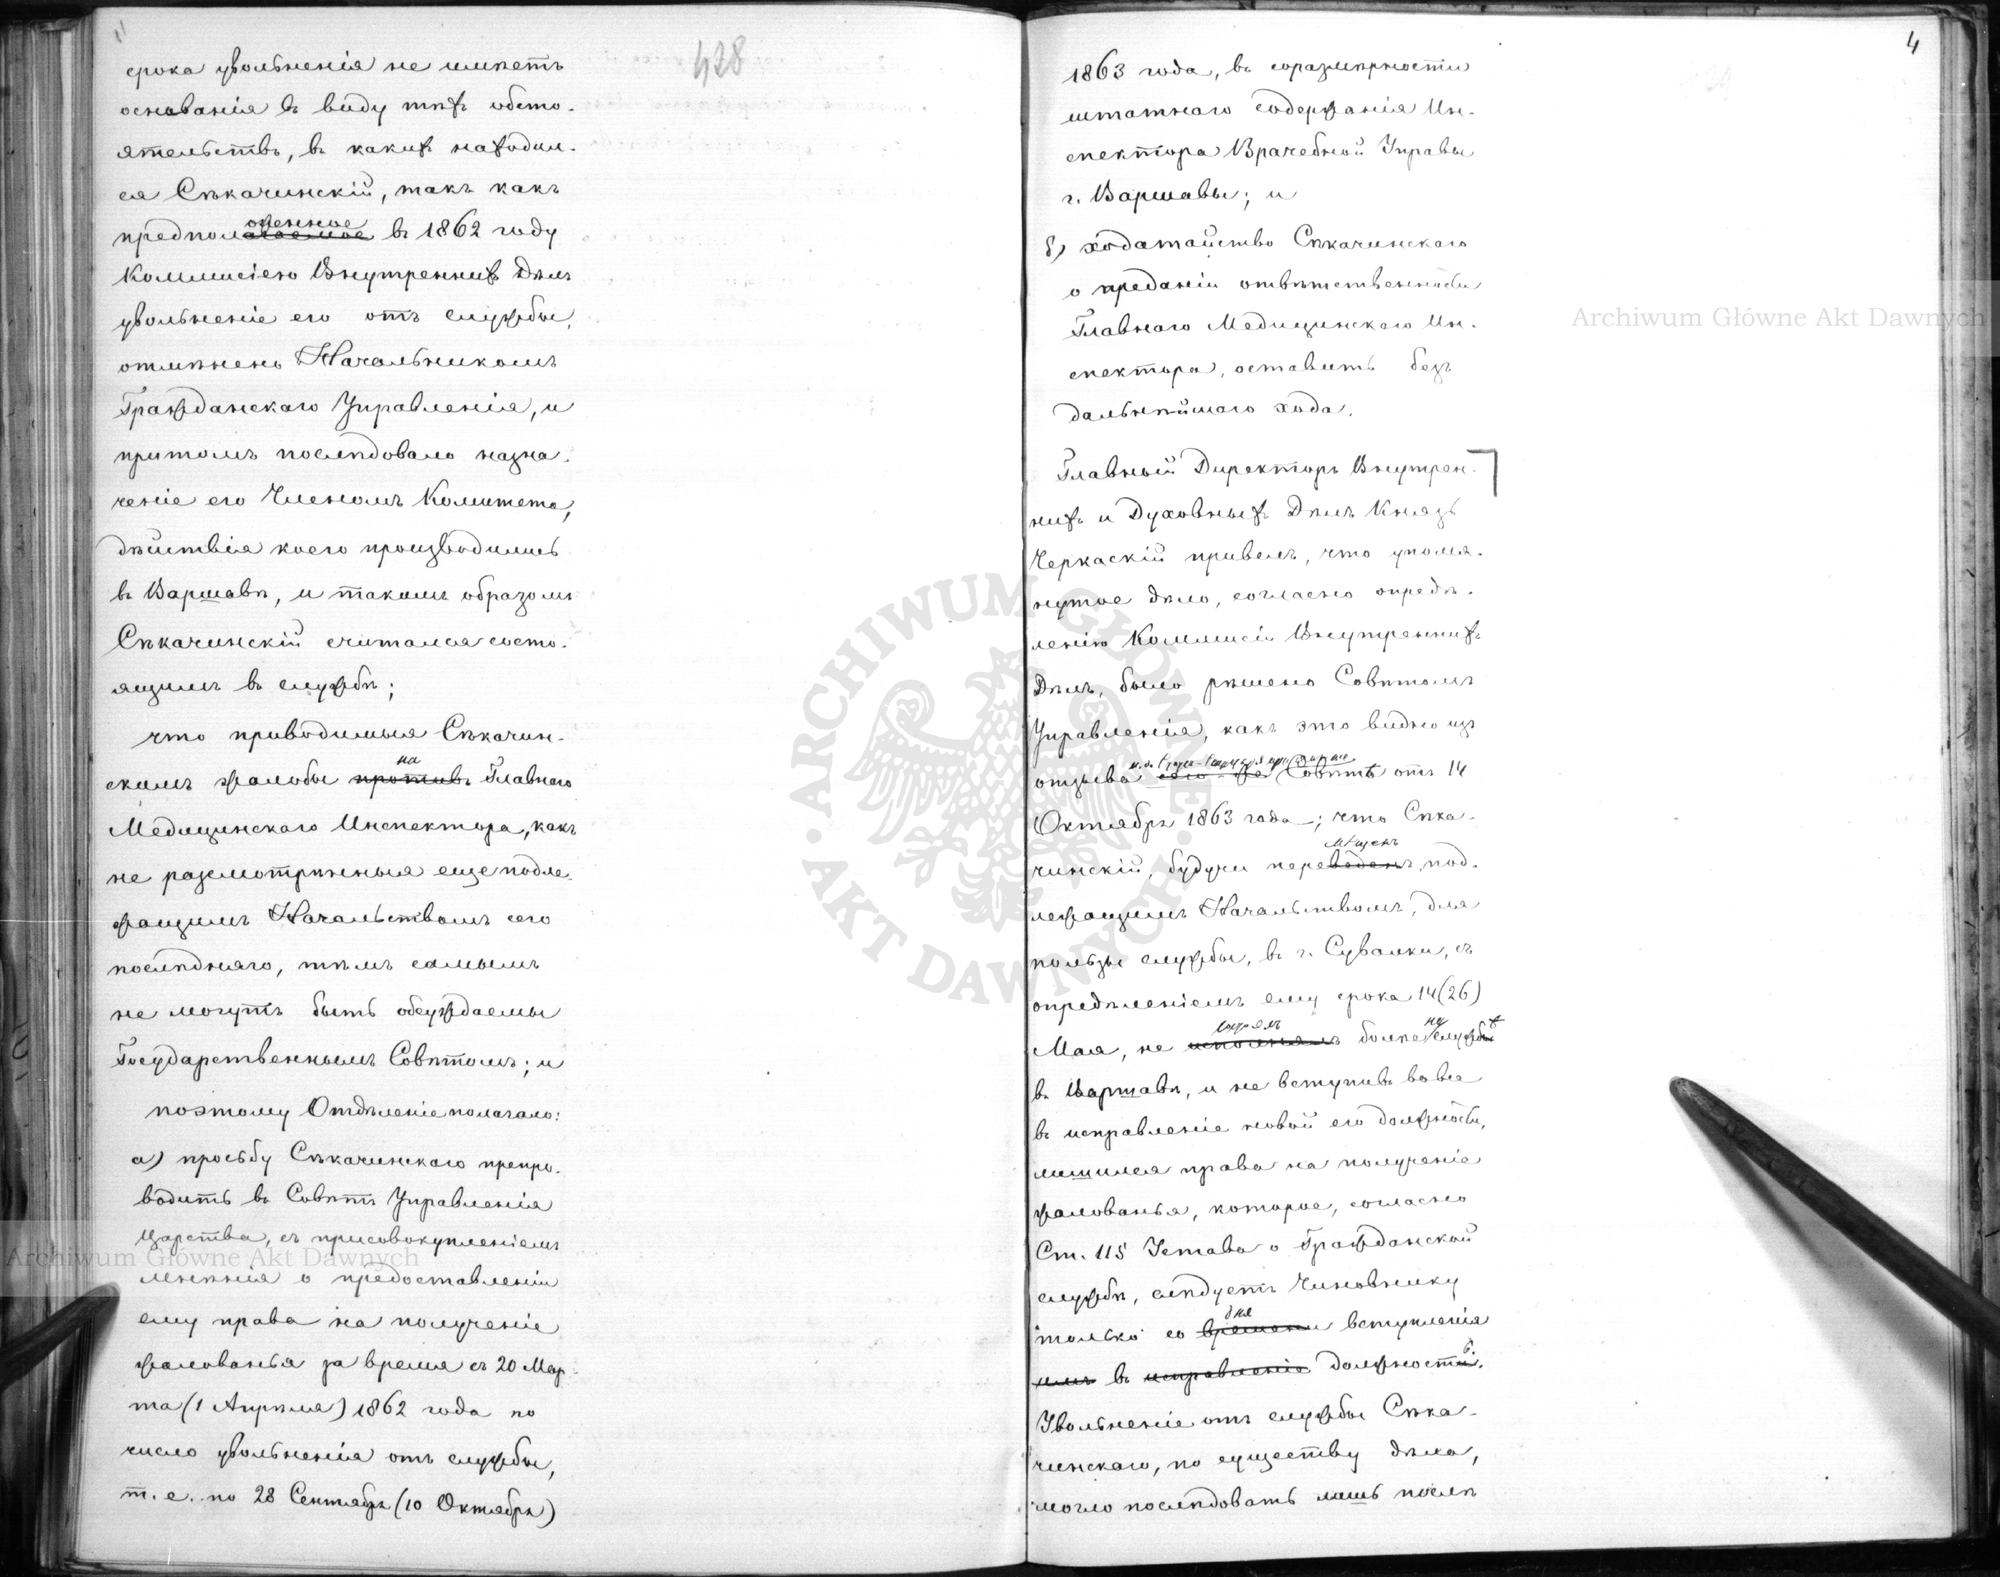 428
срока увольненія не имѣетъ
основанія въ виду тѣхъ обсто-
ятельствъ, въ какихъ находил-
ся Сѣкачинскій, такъ какъ
предположенное в 1862 году
Коммисіею Внутреннихъ Дѣлъ
увольненіе его отъ службы,
отмѣнено Начальникомъ
Гражданскаго Управленія, и
притомъ послѣдовало назна-
ченіе его Членомъ Комитета,
дѣйствія коего производились
въ Варшавѣ, и такимъ образомъ
Сѣкачинскій считался состо-
ящимъ въ службѣ;
что приводимыя Сѣкачин-
скимъ жалобы противъ на Главнаго
Медицинскаго Инспектора, какъ
не разсмотрѣнныя еще подле-
жащимъ Начальствомъ сего
послѣдняго, тѣмъ самымъ
не могутъ быть обсуждаемы
Государственнымъ Совѣтомъ; и
поэтому Отдѣленіе полагало:
а) просьбу Сѣкачинскаго препро-
водить въ Совѣтъ Управленія
Царства, съ присовокупленіемъ
мнѣнія о предоставленіи
ему права на полученіе
жалованья за время съ 20 Мар-
та (1 Апрѣля) 1862 года по
число увольненія отъ службы,
т. е. по 28 Сентября (10 Октября)
4
1863 года, въ соразмѣрности
штатнаго содержанія Ин-
спектора Врачебной Управы
г. Варшавы; и
б) ходатайство Сѣкачинскаго
о преданіи отвѣтственности
Главнаго Медицинскаго Ин-
спектора, оставить безъ
дальнѣйшаго хода.
Главный Директоръ Внутрен-
нихъ и Духовныхъ Дѣлъ Князь
Черкаскій привелъ, что упомя-
нутое дѣло, согласно опредѣ-
ленію Коммисіи Внутреннихъ
Дѣлъ, было рѣшено Совѣтомъ
Управленія, какъ это видно изъ
отзыва Совѣтѣ отъ 14
Октября 1863 года; что Сѣка-
чинскій, будучи переведенъ мѣщенъ под-
лежащимъ Начальствомъ, для
пользы службы, въ г. Сувалки, съ
опредѣленіемъ ему срока 14 (26)
Мая, не исполнялъ болѣе на службы
въ Варшавѣ, и не вступивъ вовсе
въ исправленіе новой его должности,
лишился права на полученіе
жалованья, которое, согласно
Ст. 115 Устава о Гражданской
службѣ, слѣдуетъ Чиновнику
только со времени дня вступленія
имъ въ исправленіе должности.
Увольненіе отъ службы Сѣка-
чинскаго, по существу дѣла,
могло послѣдовать лишь послѣ
Archiwum Główne Akt Dawnych
Archiwum Główne Akt Dawnych
ARCHIWUM GŁÓWNE · AKT DAWNYCH ·